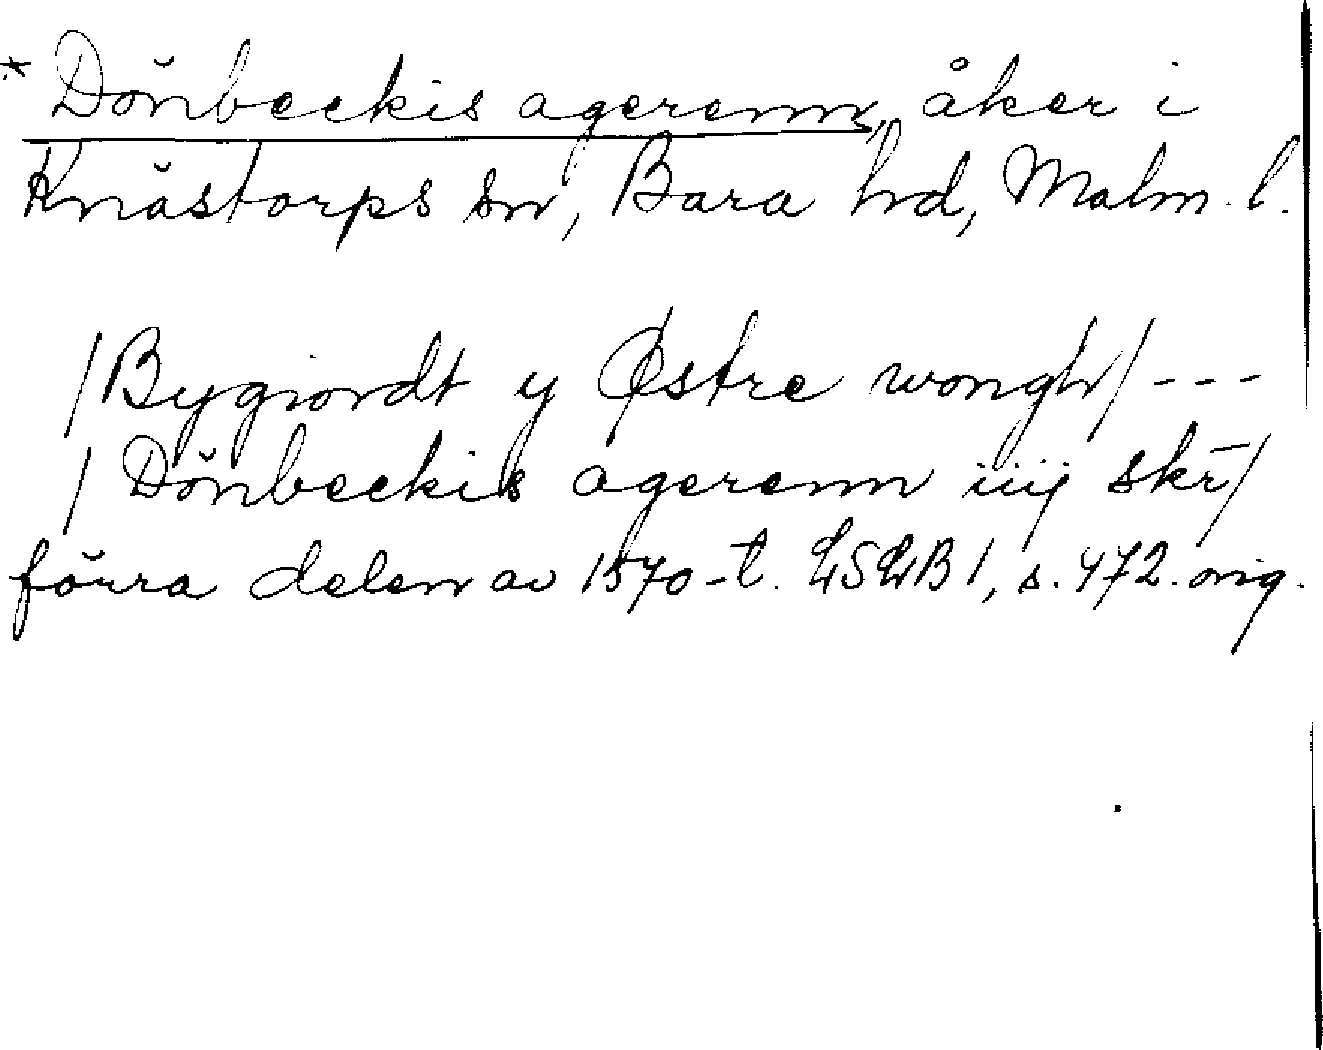 * Dönbeckis agerenn, åker i
Knästorps sn, Bara hd, Malm. l.
/Bygiordt y Østre wongh/ ---
/ Dönbeckis agerenn iiij skr̄/
förra delen av 1570-t. LSLB 1, s. 472. orig.